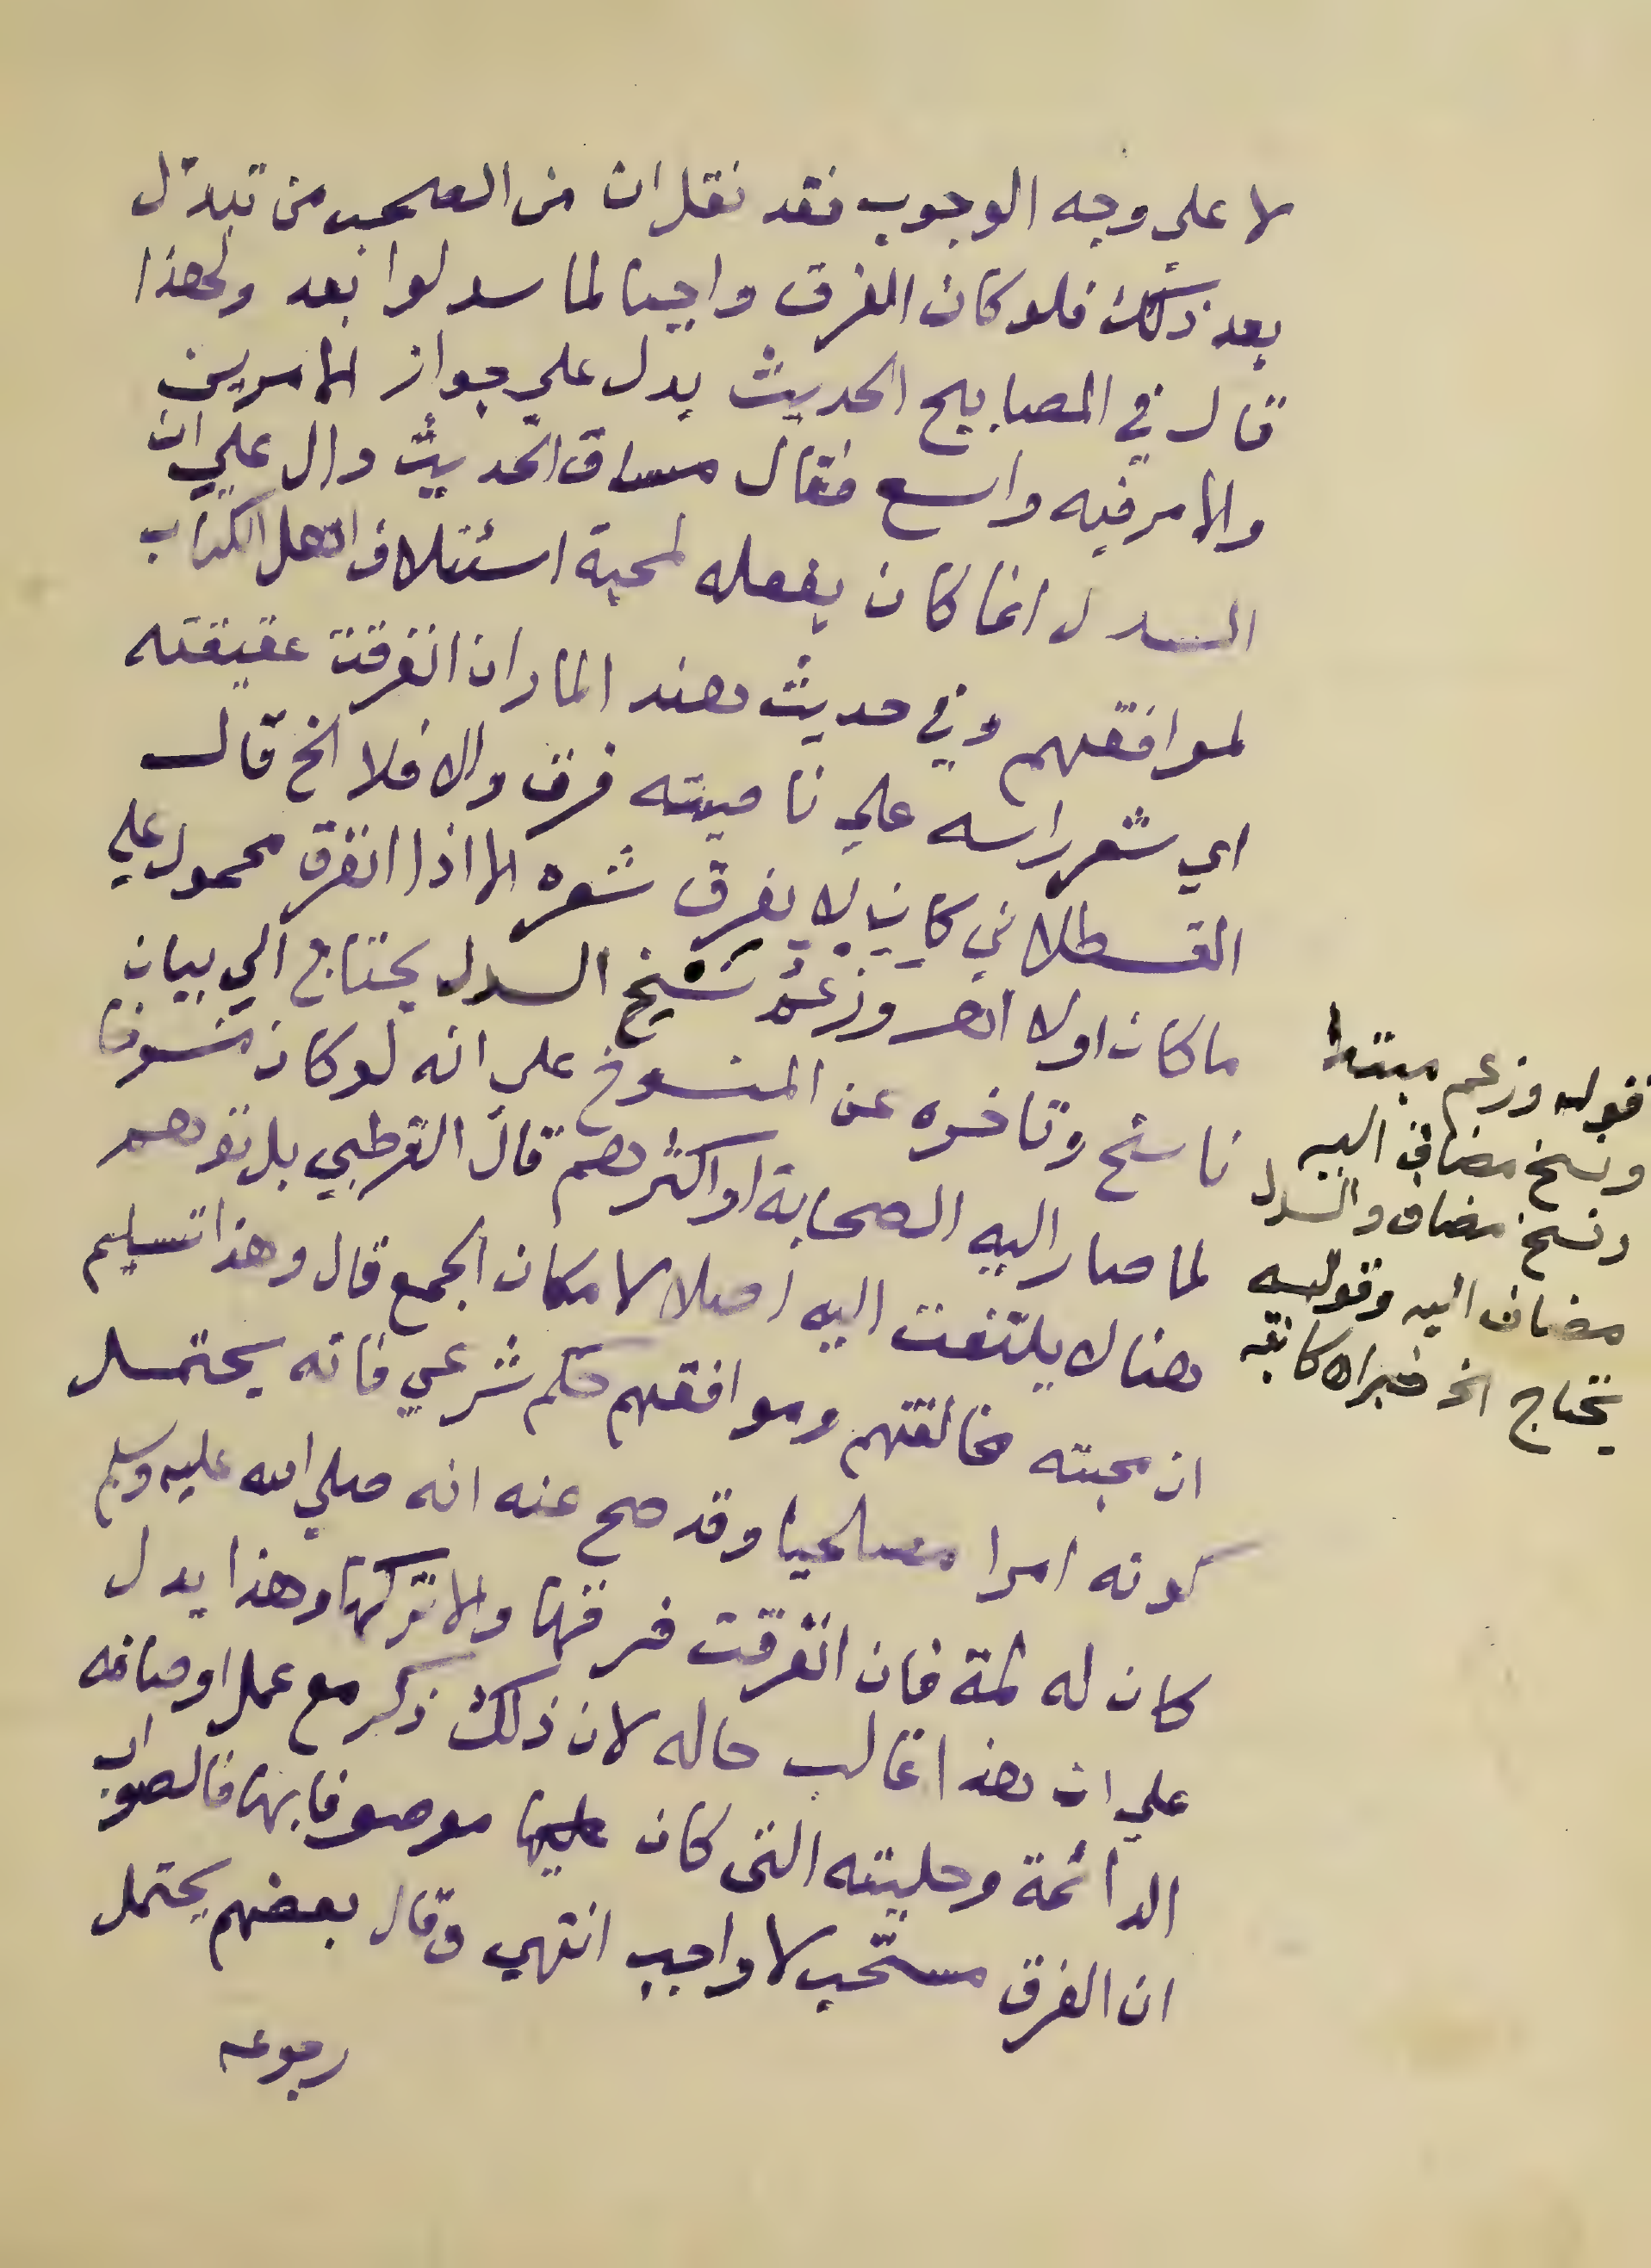 لا علي وجه الوجوب فقد نقل ان من الصحب من تبدل
بعد ذلك فلو كان الفرق واجبا لما سدلوا بعد ولهذا
قال في المصابيح الحديث يدل علي جواز الامرين
والامر فيه واسع فقال مساق الحديث دال علي ان
السدل انما كان يفعله لمحبة استئلاف اهل الكتاب
لموافقتهم وفي حديث هند المار ان انفرقت عقيقته
اي شعر راسه علي ناصيته فرق والا فلا الخ قال
القسطلاني كان لا يفرق شعره الا اذا انفرق محمول علي
ما كان اولا انهر وزعم نسخ السدل يحتاج الي بيان
ناسخ وتاخره عن المنسوخ علي انه لو كان منسوخا
لما صار اليه الصحابة او اكثرهم قال القرطبي بل توهم
هنا لا يلتفت اليه اصلا لامكان الجمع قال وهذا تسليم
ان محبته مخالفتهم وموافقتهم حكم شرعي فانه يحتمل
كونه امرا مصلحيا وقد صح عنه انه صلي الله عليه وسلم
كان له لمة فان انفرقت فرقها والا تركها وهذا يدل
علي ان هذا غالب حاله لان ذلك ذكر مع عمل اوصافه
الدائمة وحليته التي كان عليها موصوفا بها فالصواب
ان الفرق مستحب لا واجب انتهي وقال بعضهم يحتمل
رجوعه
قوله وزعم مبتدا
ونسخ مضاف اليه
ونسخ مضاف والسدل
مضاف اليه وقوله
يحتاج الخ خبراه كاتبه